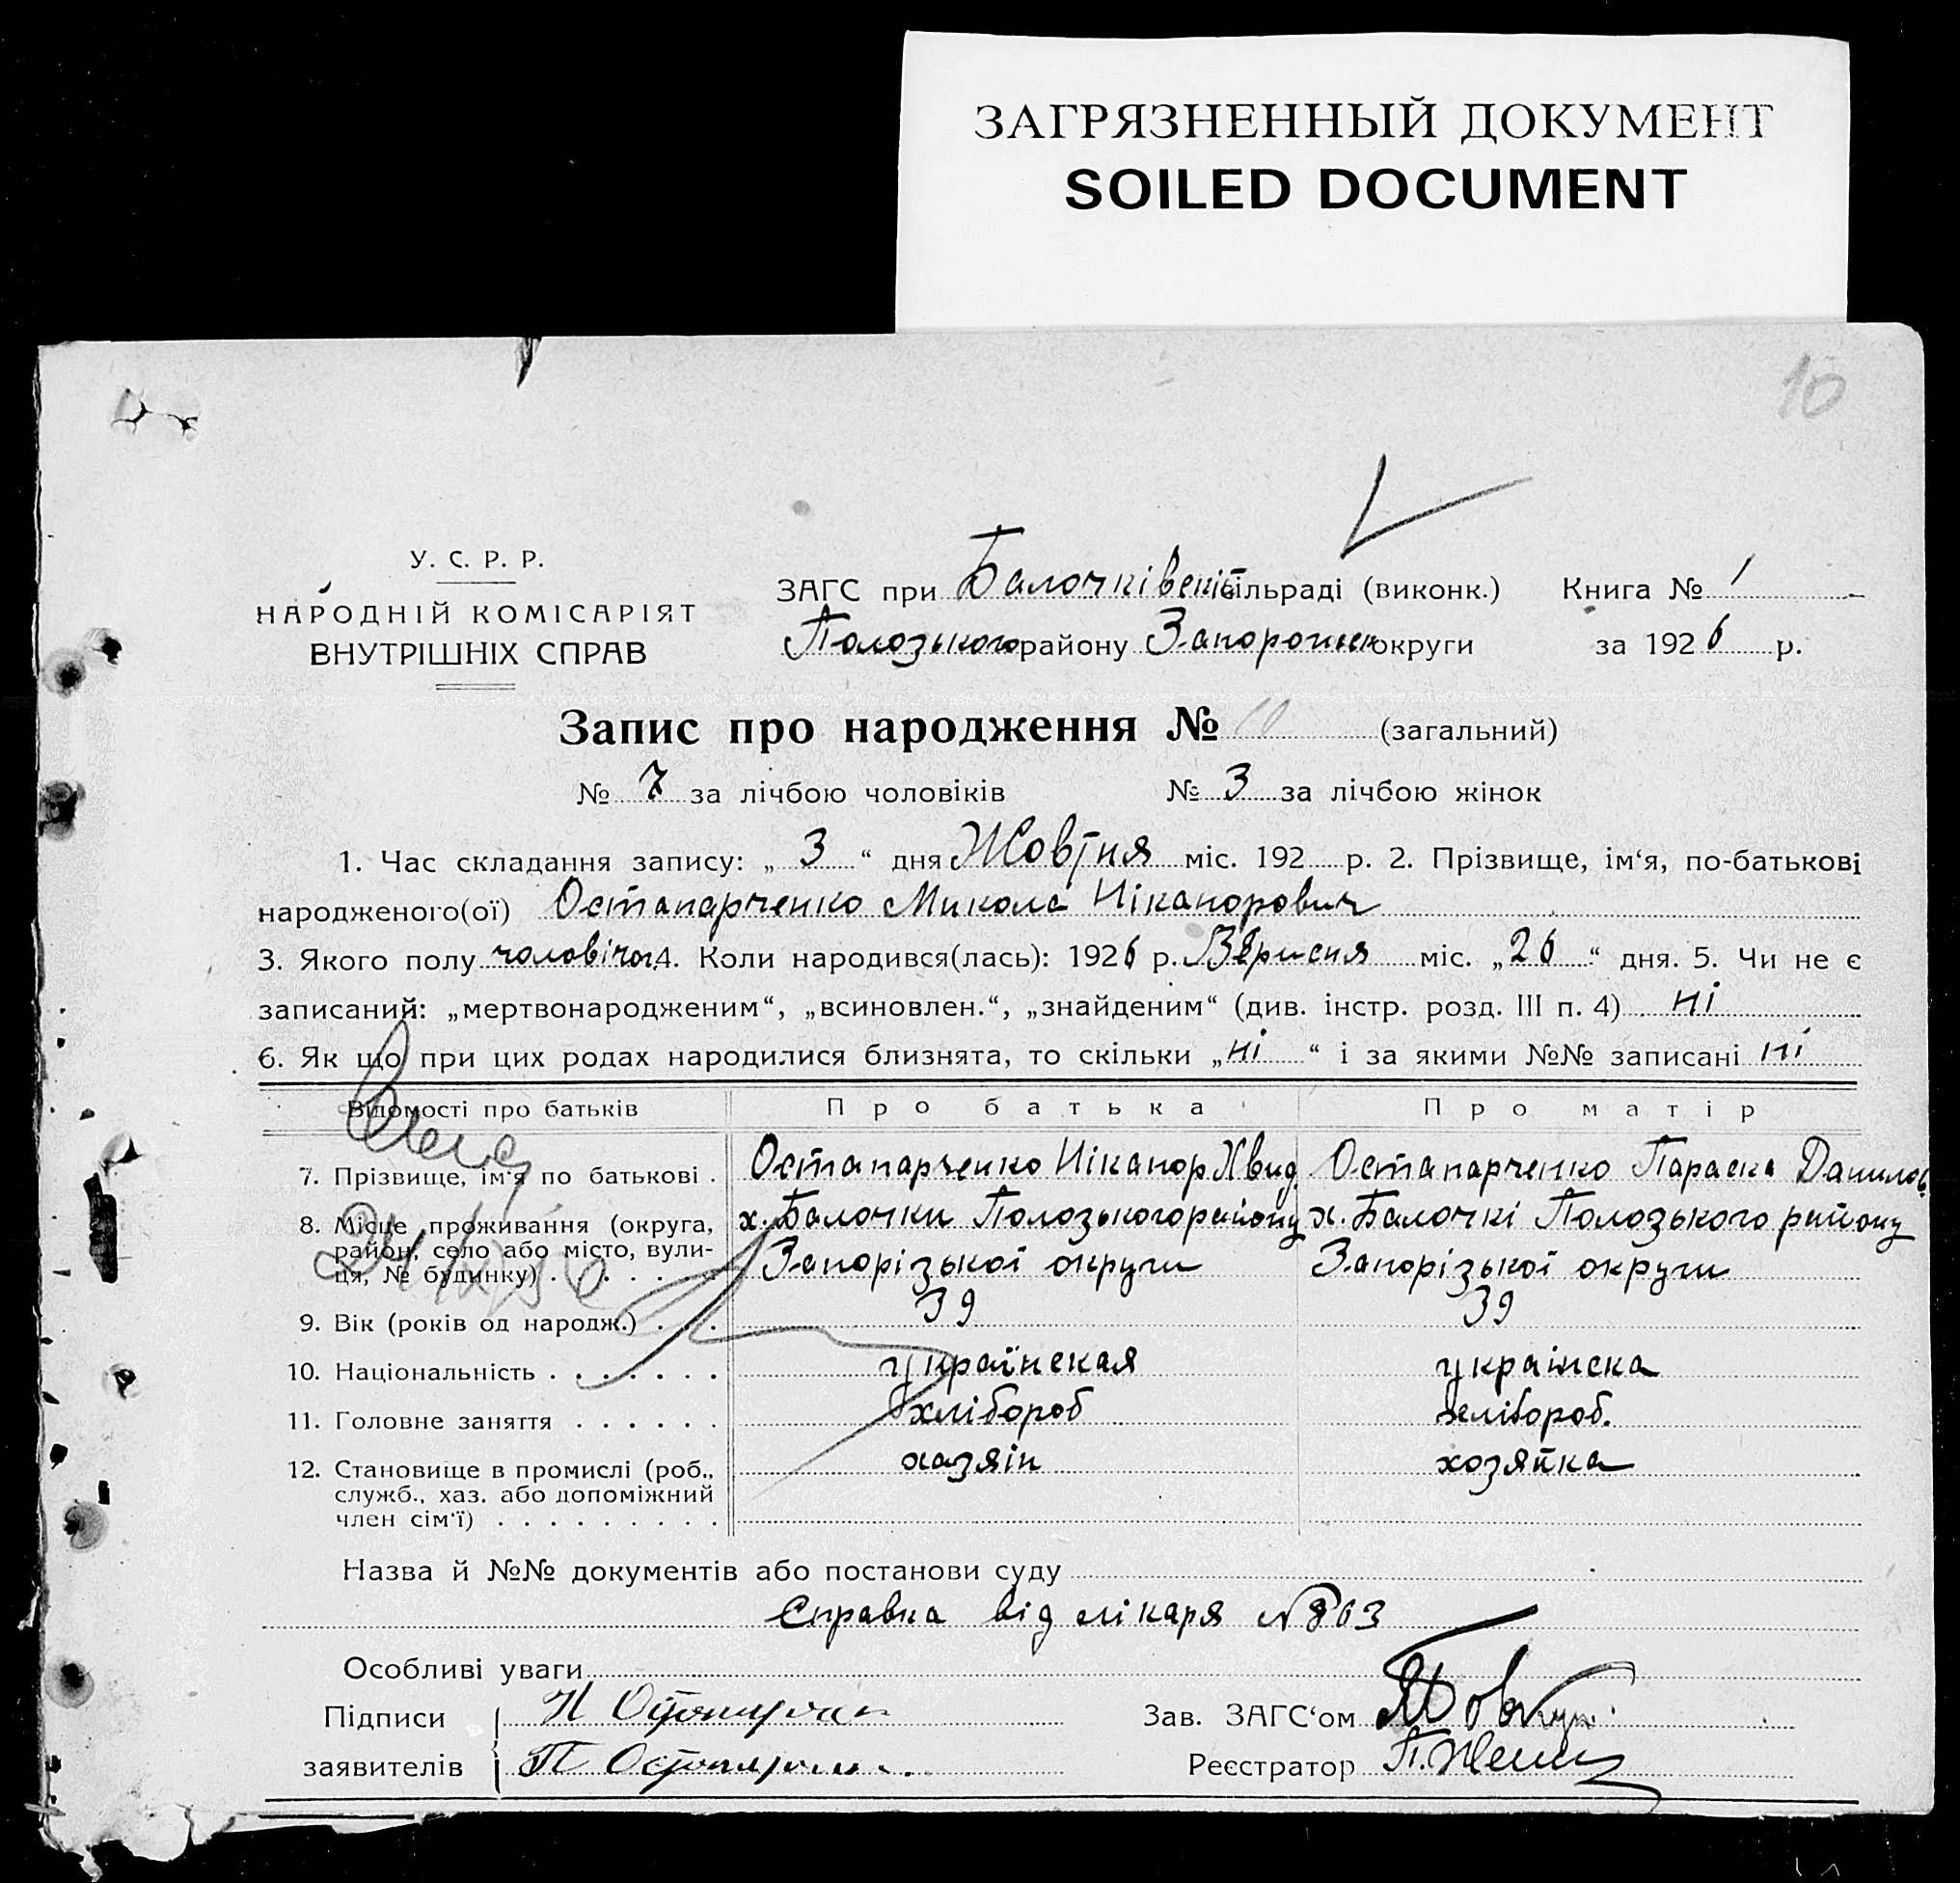 ЗАГРЯЗНЕННЫЙ ДОКУМЕНТ
SOILED DOCUMENT
10
У. С. Р. Р.
НАРОДНІЙ КОМІСАРІЯТ
ВНУТРІШНІХ СПРАВ
ЗАГС при Балочківскій сільраді (виконк.) Книга № 1
Полозького району Запорожськ округи за 1926 р.
Запис про народження № 10 (загальний)
№ 7 за лічбою чоловіків № 3 за лічбою жінок
1. Час складання запису: „ 3 “ дня Жовтня міс. 192 р. 2. Прізвище, ім‘я, по-батькові
народженого(ої) Остапарченко Микола Ніканорович
3. Якого полу чоловічог. 4. Коли народився(лась): 1926 р. Вérисня міс. „26“ дня. 5. Чи не є
записаний: „мертвонародженим“, „всиновлен.“, „знайденим“ (див. інстр. розд. III п. 4) ні
6. Як що при цих родах народилися близнята, то скільки „ні“ і за якими №№ записані ні
Відомості про батьків Про батька Про матір
7. Прізвище, ім‘я по батькові . Остапарченко Ніканор Хвид. Остапарченко Параска Данилов.
8. Місце проживання (округа, район, село або місто, вулиця, № будинку) . . . . . . .
х. Балочки Полозького району х. Балочкі Полозького району
Запорізької округи Запорізької округи
9. Вік (років од народж.) . . . 39 39
10. Національність . . . . . . . українская українска
11. Головне заняття . . . . . . хлібороб хлібороб.
12. Становище в промислі (роб., хазяін хозяйка
служб., хаз. або допоміжний
член сім‘ї) . . . . . . . . .
Назва й №№ документів або постанови суду
Справка від лікаря №863
Особливі уваги
Підписи Н
Зав. ЗАГС‘ом
заявителів П
Реєстратор П.